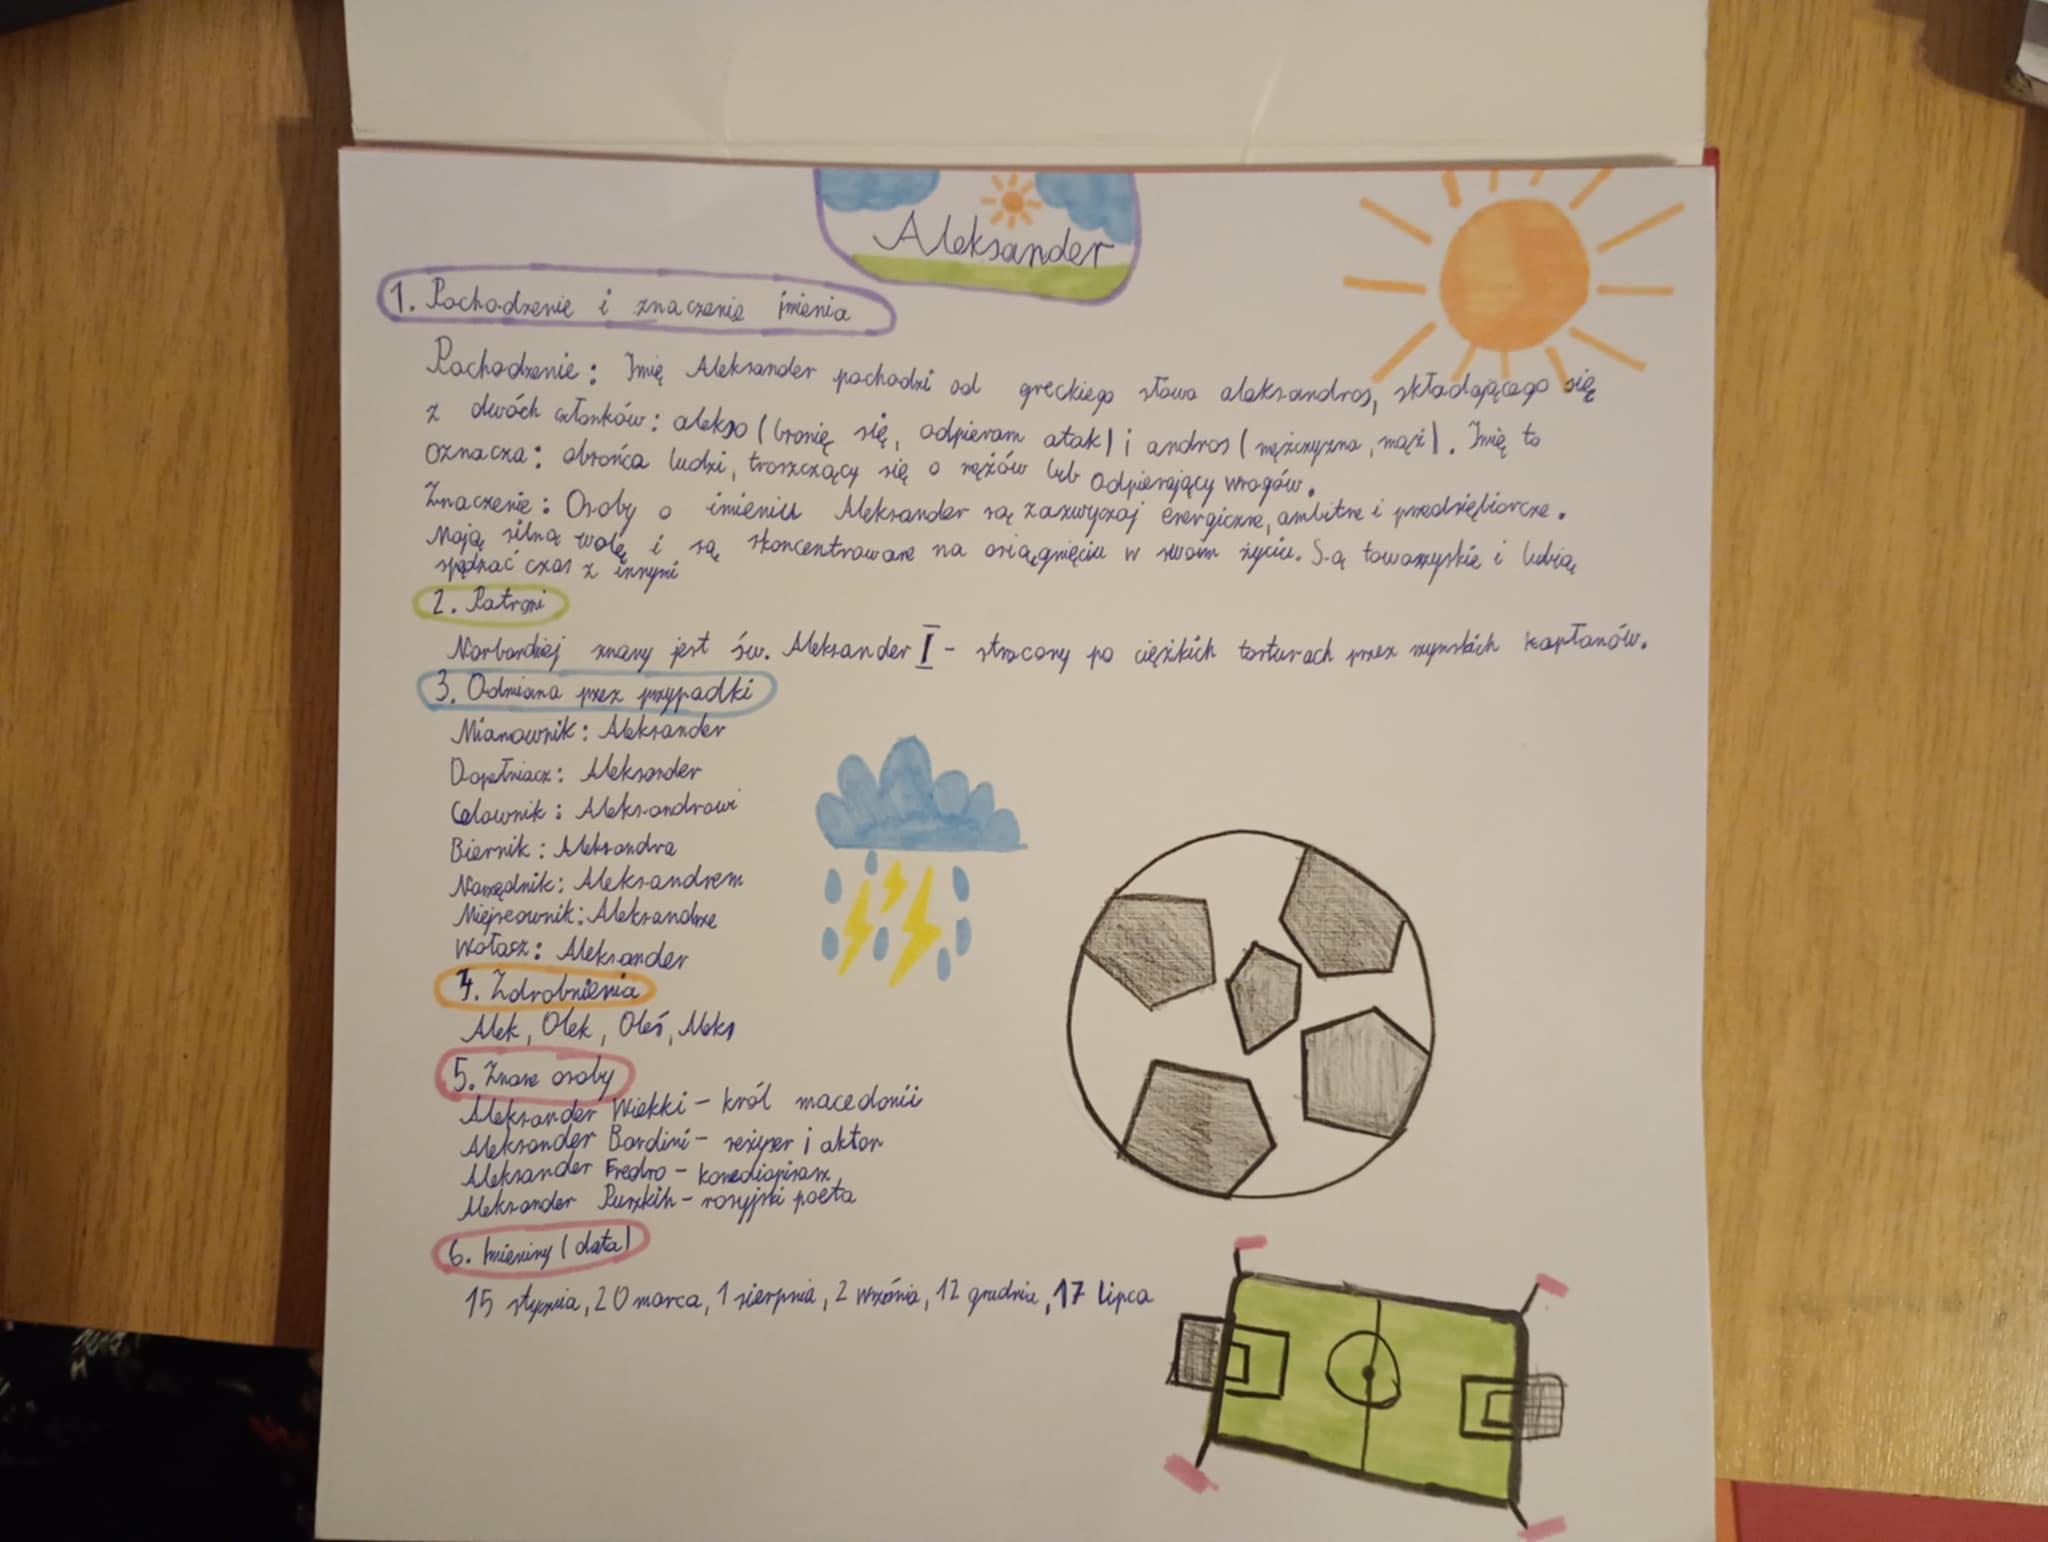 Aleksander
1. Pochodzenie i znaczenie imienia
Pochodzenie: Imię Aleksander pochodzi od greckiego słowa aleksandros, składającego się
z dwóch członków: alekso (bronię się, odpieram atak) i andros (mężczyzna, mąż). Imię to
oznacza: obrońca ludzi, troszczący się o mężów lub odpierający wrogów.
Znaczenie: Osoby o imieniu Aleksander są zazwyczaj energiczne, ambitne i przedsiębiorcze.
Mają silną wolę i są skoncentrowane na osiągnięciu w swoim życiu. Są towarzyskie i lubią
spędzać czas z innymi
2. Patroni
Narbardziej znany jest św. Aleksander I - stracony po ciężkich torturach przez rzymskich kapłanów.
3. Odmiana przez przypadki
Mianownik: Aleksander
Dopełniacz: Aleksander
Celownik: Aleksandrowi
Biernik: Aleksandra
Narzędnik: Aleksandrem
Miejscownik: Aleksandrze
Wołasz: Aleksander
4. Zdrobnienia
Alek, Olek, Oleś, Aleks
5. Znane osoby
Aleksander Wielki - król macedonii
Aleksander Bardini - reżyser i aktor
Aleksander Fredro - komediopisarz
Aleksander Puszkin - rosyjski poeta
6. Imieniny (data)
15 stycznia, 20 marca, 1 sierpnia, 2 września, 12 grudnia, 17 lipca